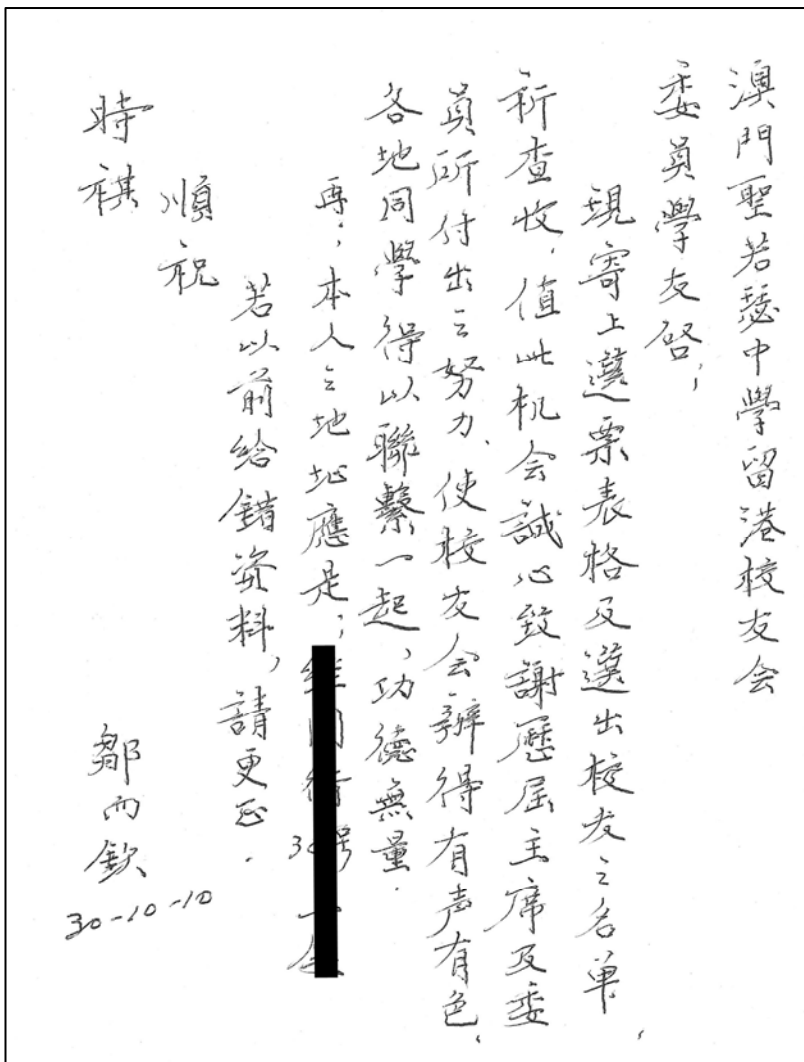 澳門聖若瑟中學留港校友会
委員學友啓；
現寄上選票表格及選出校友之名单，
祈查收，值此机会誠心致謝歷屆主席及委
員所付出之努力、使校友会辦得有声有色，
各地同學得以聯繫一起，功德無量．
再；本人之地址應是；
若以前給錯資料，請更正．
順祝
時祺
鄒而欽
30-10-10